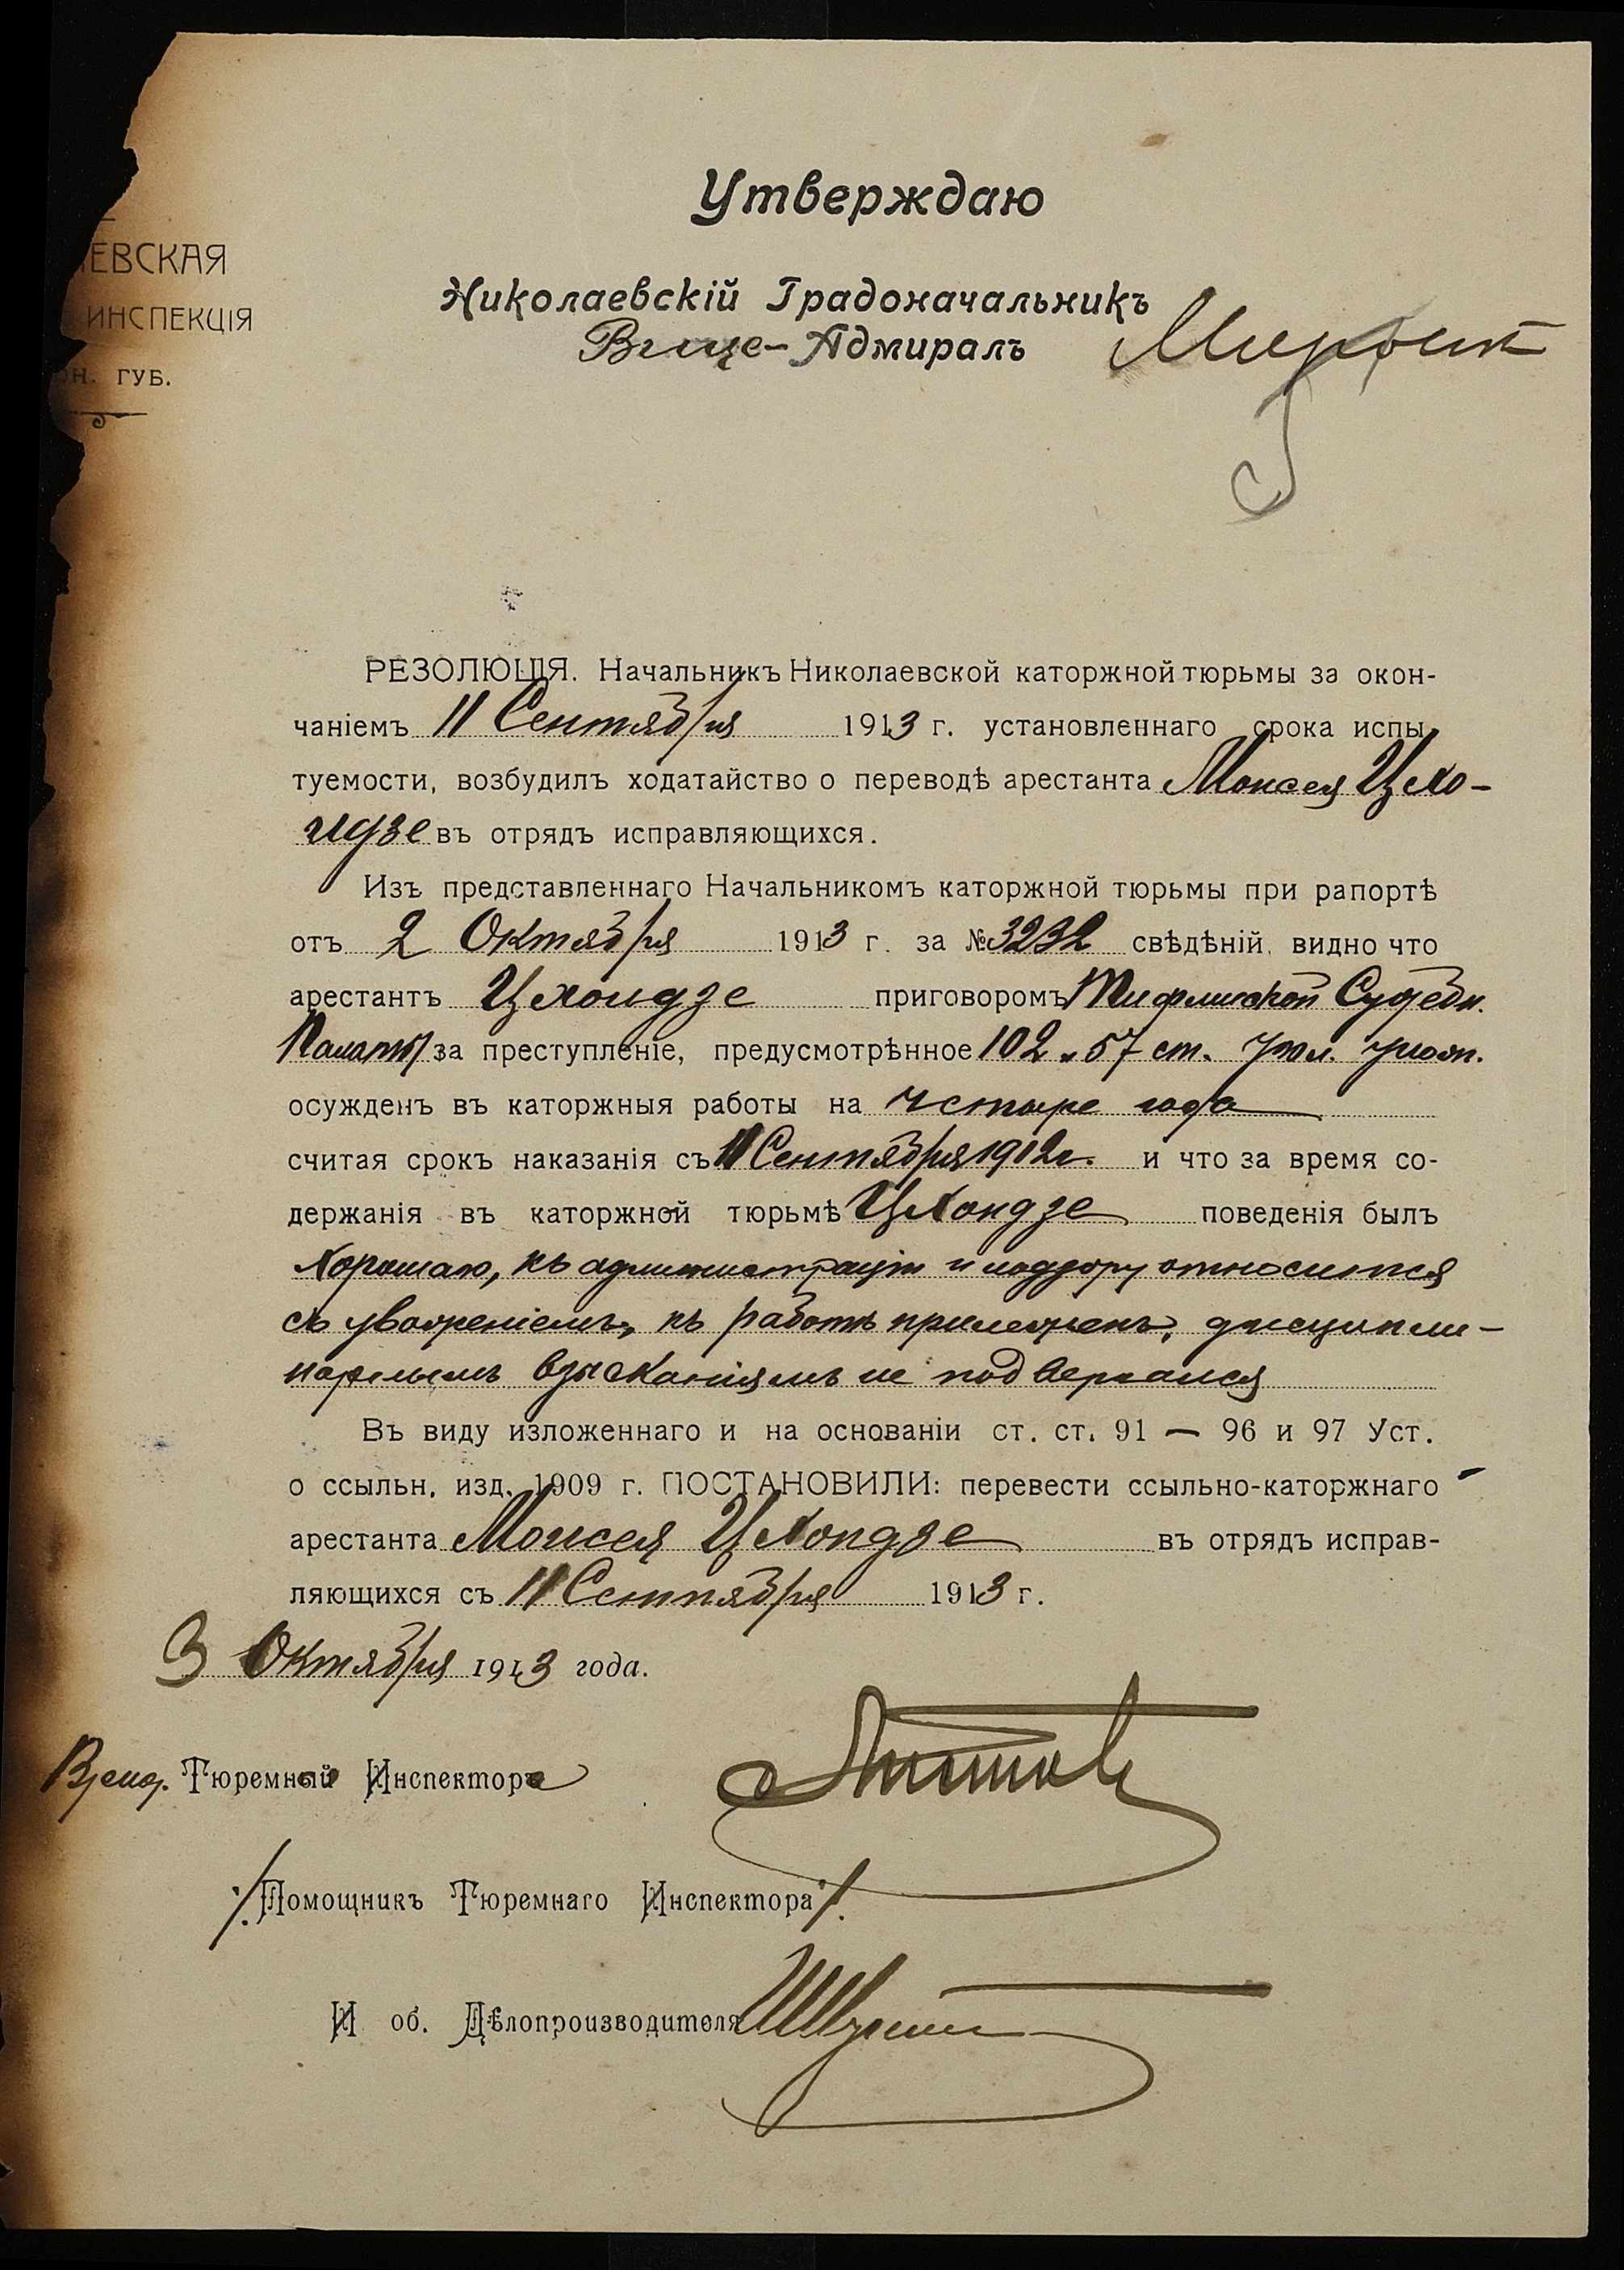 Утверждаю
ЕВСКАЯ
ИНСПЕКЦІЯ
Н. ГУБ.
Николаевскій Градоначальникъ
Вице-Адмиралъ
РЕЗОЛЮЦІЯ. Начальникъ Николаевской каторжной тюрьмы за окон-
чаніемъ 11 Сентября 1913 г. установленнаго срока испы
туемости, возбудилъ ходатайство о переводѣ арестанта Моисея Цхо-
идзе въ отрядъ исправляющихся.
Изъ представленнаго Начальникомъ каторжной тюрьмы при рапортѣ
отъ 2 Октября 1913 г. за № 3232 свѣдѣній, видно что
арестантъ Цхоидзе приговоромъ Тифлисской Судебн.
Палаты за преступленіе, предусмотрѣнное 102 и 57 ст. Угол. улож.
осужденъ въ каторжныя работы на четыре года
считая срокъ наказанія съ 11 Сентября 1912 г. и что за время со-
держанія въ каторжной тюрьмѣ Цхоидзе поведенія былъ
хорошаго, къ администраціи и надзору относится
съ уваженіемъ, къ работѣ прилеженъ, дисципли-
нарнымъ взысканіямъ не подвергался
Въ виду изложеннаго и на основаніи ст. ст. 91 — 96 и 97 Уст.
о ссыльн, изд. 1909 г. ПОСТАНОВИЛИ: перевести ссыльно-каторжнаго
арестанта Моисея Цхоидзе въ отрядъ исправ-
ляющихся съ 11 Сентября 1913 г.
3 Октября 1913 года.
Тюремный Инспектора
Помощникъ Тюремнаго Инспектора
И об. Дѣлопроизводителя